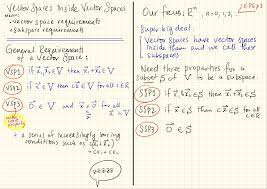 Vector Spaces Inside Vector Spaces
Means:
• Vector space requirements
• Subspace requirements
General Requirements
of a Vector Space:
VSP1 if x⃗₁, x⃗₂ ∈ V then x⃗₁ + x⃗₂ ∈ V
VSP2 if x⃗ ∈ V then cx⃗ ∈ V for all c ∈ ℝ
VSP3 0⃗ ∈ V and x⃗ + 0⃗ = x⃗ for all x⃗ in V
+ a series of increasingly boring
conditions such as
zzzzz
Our focus: ℝⁿ, n = 0, 1, 2, ...
Super big deal:
Vector Spaces have vector spaces
inside them and we call these
subspaces
Need three properties for a
subset S of V to be a subspace:
SSP1 if x⃗₁, x⃗₂ ∈ S then x⃗₁ + x⃗₂ ∈ S
SSP2 if x⃗ ∈ S then cx⃗ ∈ S for all c ∈ ℝ
SSP3 0⃗ ∈ S